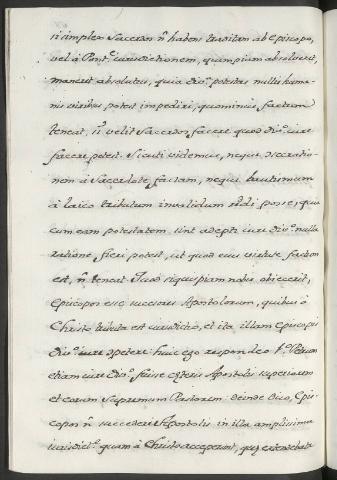 si simplex Sacerdos ñ habens traditam ab Episcopo,
vel à Pont.e iurisdictionem, quempiam absolverit,
manerit absolutus, quia div.a potestas nullis huma-
nis viribus potest impediri, quominus factum
teneat, si velit Sacerdos facere quod div.o iure
facere potest. Sicuti videmus, neque consecratio-
nem à Sacerdote factam, neque baptismum
à laico tributum invalidum reddi posse, qui
cum eam potestatem sint adepti iure div.o nulla
ratione fieri potest, ut quod eius virtute factum
est, ñ teneat. Quod si quispiam nobis obiecerit,
Episcopos esse successores Apostolorum, quibus à
Christo tributa est iurisdictio, et ita illam Episcopis
div.o iure competere: huic ego respondeo P. Petrum
etiam iure div.o fuisse cæteris Apostolis superiorem
et eorum supremum Pastorem: deinde dico, Epis-
copos ñ succedere Apostolis in illa amplissima
iurisdict.e quam à Christo acceperunt, quæ extendebatur